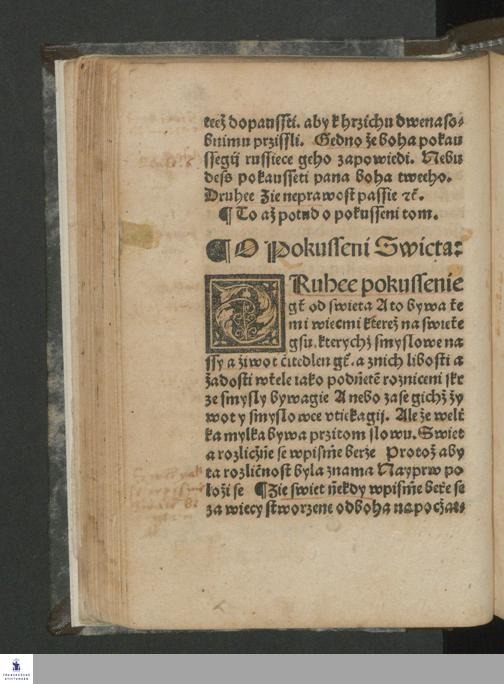 teež dopaussti. aby k hrzichu dwenaso⸗
bnimu przissli. Gedno že boha pokau
ssegij russiece geho zapowiedi. Nebu
deso pokausseti pana boha tweeho.
Druhee Zie neprawost passie ⁊č.
¶ To až potud o pokusseni tom.
¶ O Pokusseni Swieta:
Ruhee pokussenie
gt̃ od swieta A to bywa tē
mi wiecmi kterež na swietie
gsu. kterychž smyslowe na
ssy a žiwot čitedlen gt̃. a znich libosti a
žadosti wtiele iako podnietie rozniceni skr
ze smysly bywagie A nebo zase gichž žy
wot y smyslowce vtiekagij. Ale že welī
ka mylka bywa przitom slowu. Swiet
a rozličnie se wpismie berže Protož aby
ta rozličnost byla znama Nayprw po
loži se ¶ Zie swiet niekdy wpismie beře se
za wiecy stworzene od boha na počzat⸗
FRANCKESCHE
STIFTUNGEN